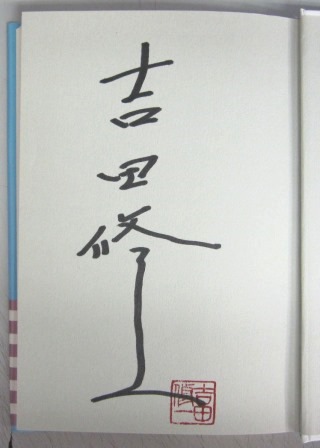 吉田修一
吉田
修一